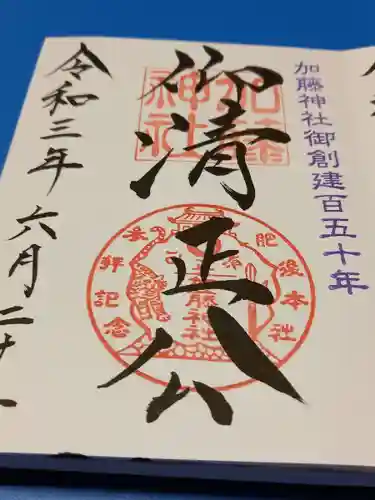 加藤神社御創建百五十年
加藤
神社
御清正公
肥後本社
参拝記念
加藤神社
令和三年六月二十一